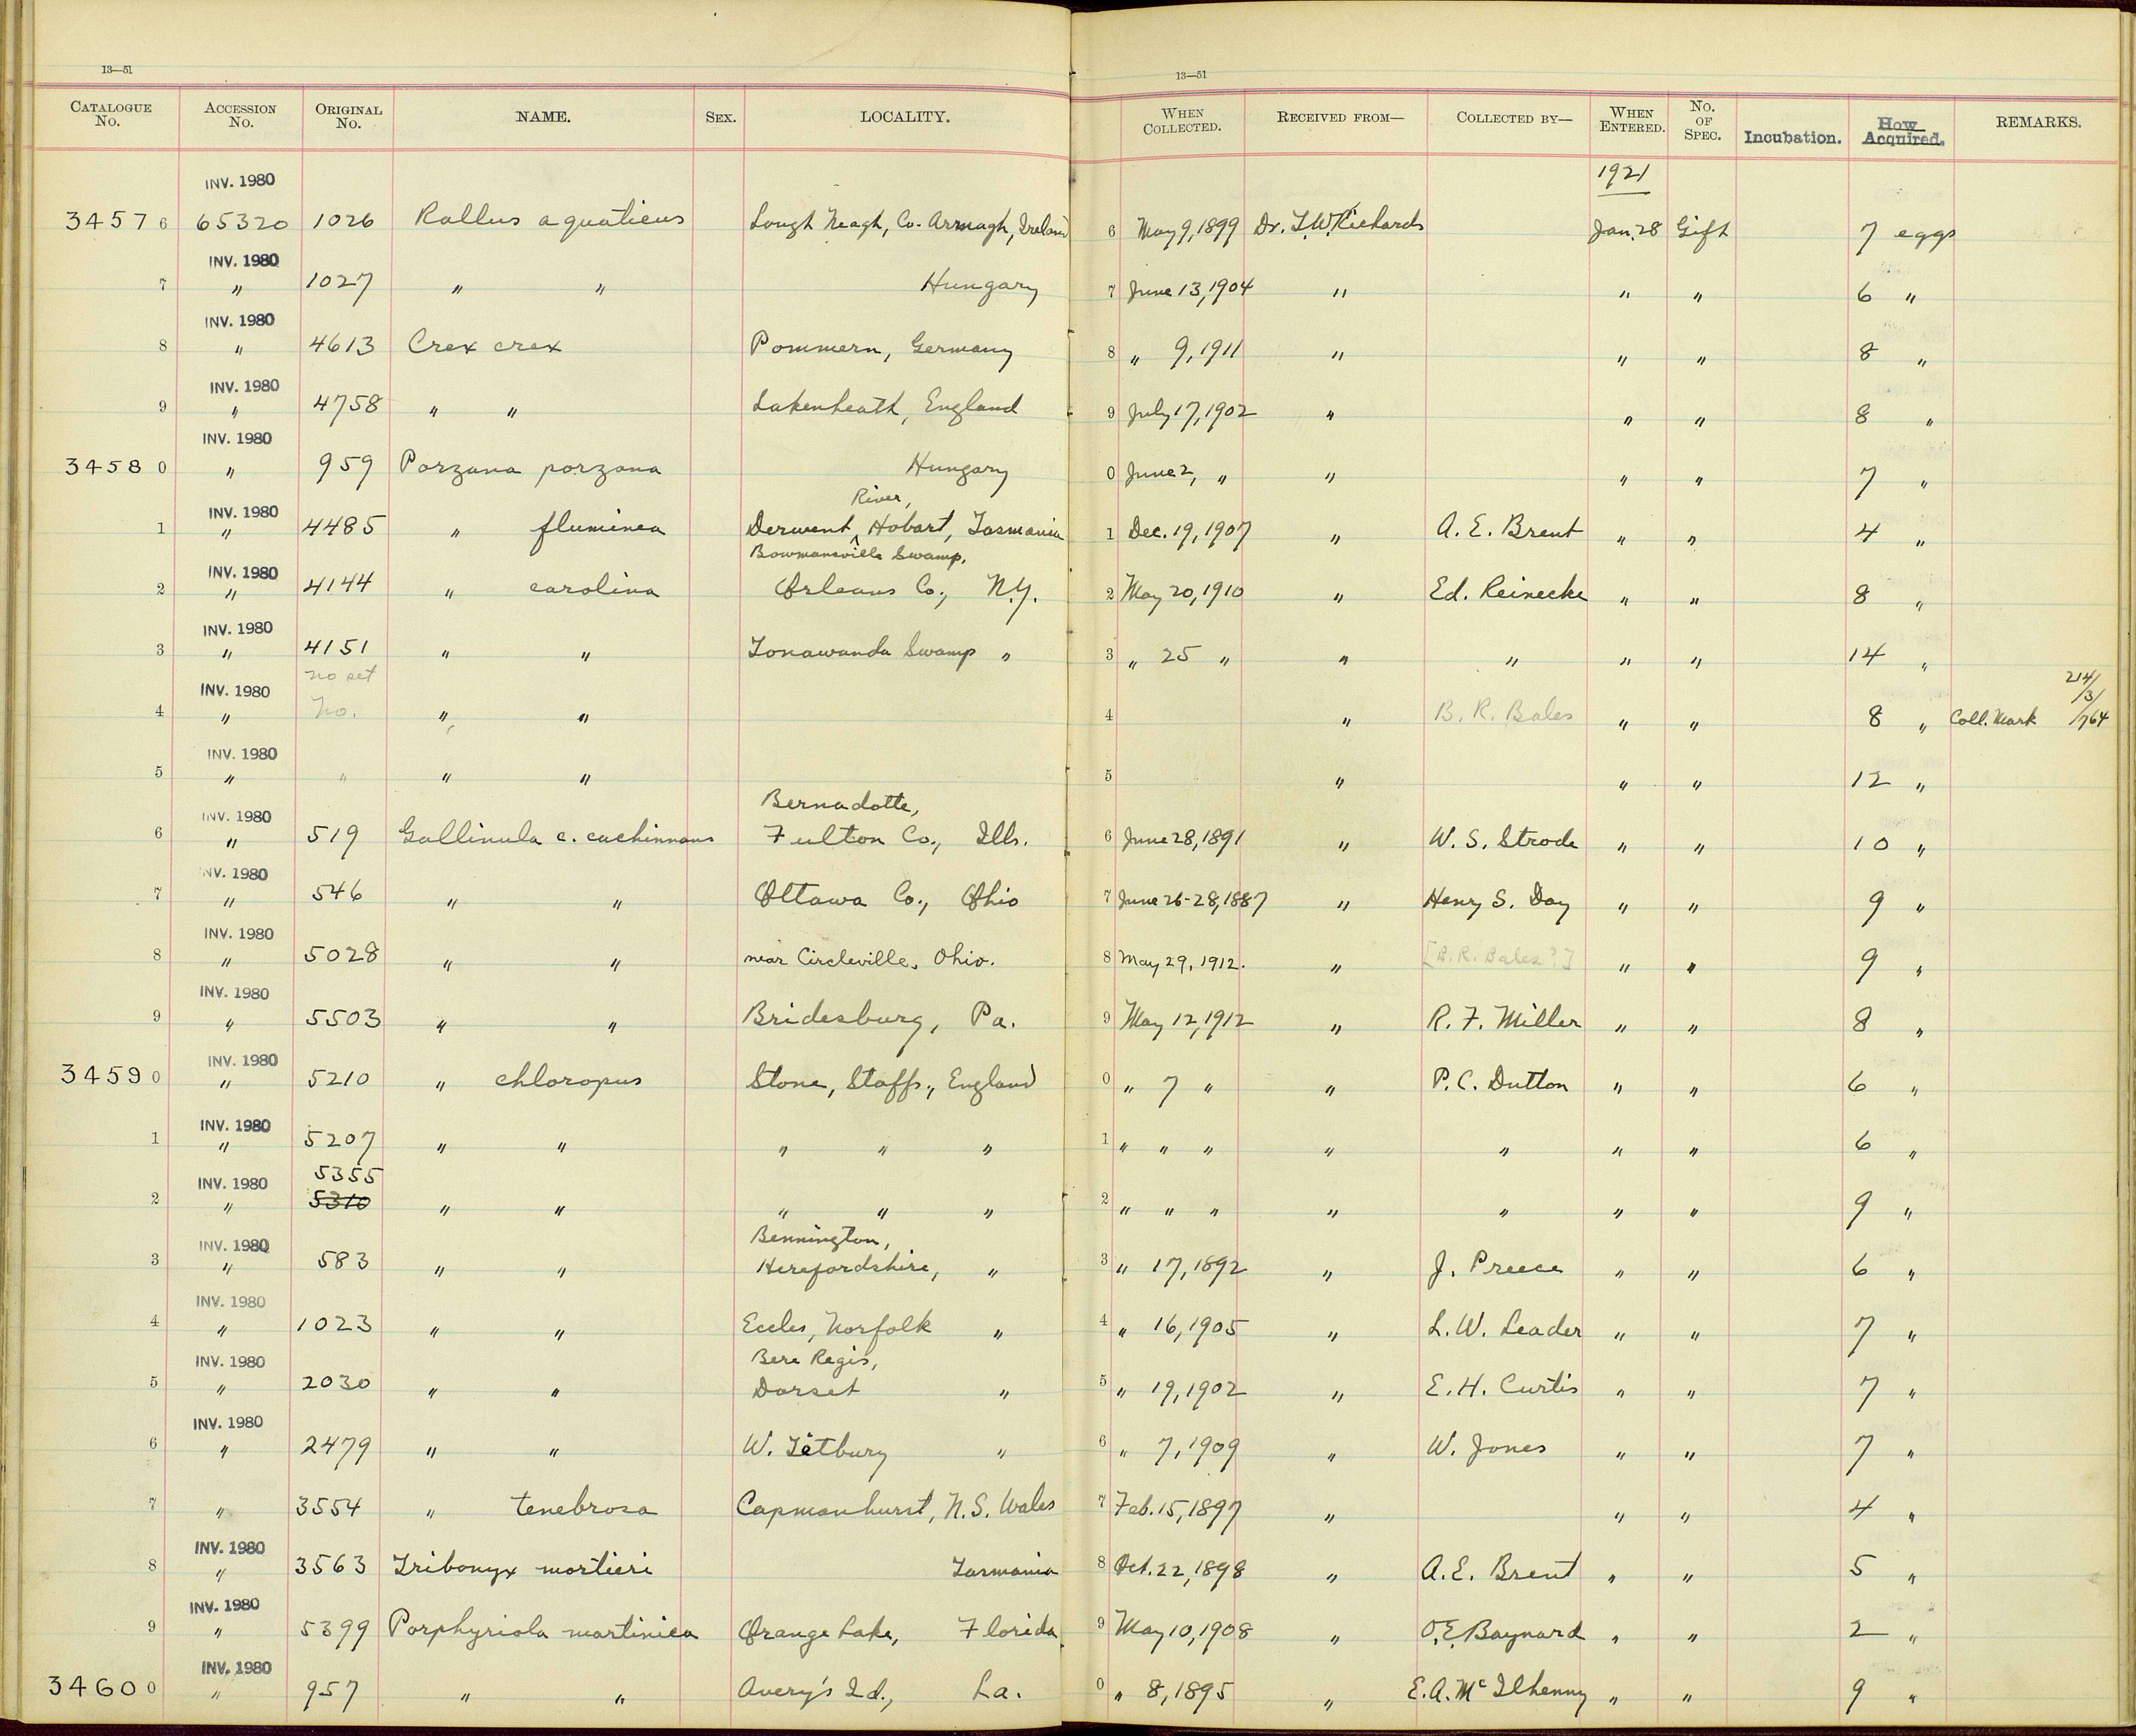 13—51
13—51
CATALOGUE No. ACCESSION No. ORIGINAL No. NAME. SEX. LOCALITY. WHEN COLLECTED. RECEIVED FROM— COLLECTED BY— WHEN ENTERED. NO. OF SPEC. Incubation. How Acquired. REMARKS.
INV. 1980 1921
34576 65320 1026 Rallus aquaticus Lough Neagh, Co. Armagh, Ireland 6 May 9, 1899 Dr. T.W. Richards Jan. 28 Gift 7 eggs
INV. 1980
7 " 1027 " " Hungary 7 June 13, 1904 " " " 6 "
INV. 1980
8 " 4613 Crex crex Pommern, Germany 8 " 9, 1911 " " " 8 "
INV. 1980
9 " 4758 " " Lakenheath, England 9 July 17, 1902 " " " 8 "
INV. 1980
34580 " 959 Porzana porzana Hungary 0 June 2, " " " " 7 "
INV. 1980 River,
1 " 4485 " fluminea Derwent ^ Hobart, Tasmania 1 Dec. 19, 1907 " A. E. Brent " " 4 "
INV. 1980 Bowmansville Swamp,
2 " 4144 " carolina Orleans Co., N.Y. 2 May 20, 1910 " Ed. Reinecke " " 8 "
INV. 1980
3 " 4151 " " Tonawanda Swamp " 3 " 25 " " " " " 14 "
INV. 1980 no set 214/
4 " No. " " 4 " B. R. Bales " " 8 " Coll. Mark /3/ /764
INV. 1980
5 " " " " 5 " " " 12 "
INV. 1980 Bernadotte,
6 " 519 Gallinula c. cachinnans Fulton Co., Ills. 6 June 28, 1891 " W. S. Strode " " 10 "
INV. 1980
7 " 546 " " Ottawa Co., Ohio 7 June 26-28, 1887 " Henry S. Day " " 9 "
INV. 1980
8 " 5028 " " near Circleville, Ohio. 8 May 29, 1912. " [B. R. Bales?] " " 9 "
INV. 1980
9 " 5503 " " Bridesburg, Pa. 9 May 12, 1912 " R. F. Miller " " 8 "
INV. 1980
34590 " 5210 " chloropus Stone, Staffs., England 0 " 7 " " P. C. Dutton " " 6 "
INV. 1980
1 " 5207 " " " " " 1 " " " " " " " 6 "
INV. 1980 5355
2 " 5310 " " " " " 2 " " " " " " " 9 "
INV. 1980 Bennington,
3 " 583 " " Herefordshire, " 3 " 17, 1892 " J. Preece " " 6 "
INV. 1980
4 " 1023 " " Eccles, Norfolk " 4 " 16, 1905 " L. W. Leader " " 7 "
INV. 1980 Bere Regis,
5 " 2030 " " Dorset " 5 " 19, 1902 " E. H. Curtis " " 7 "
INV. 1980
6 " 2479 " " W. Tetbury " 6 " 7, 1909 " W. Jones " " 7 "
7 " 3554 " tenebrosa Capmanhurst, N. S. Wales 7 Feb. 15, 1897 " " " 4 "
INV. 1980
8 " 3563 Tribonyx mortieri Tasmania 8 Oct. 22, 1898 " A. E. Brent " " 5 "
INV. 1980
9 " 5399 Porphyriola martinica Orange Lake, Florida 9 May 10, 1908 " O. E. Baynard " " 2 "
INV. 1980
34600 " 957 " " Avery's Id., La. 0 " 8, 1895 " E. A. McIlhenny " " 9 "